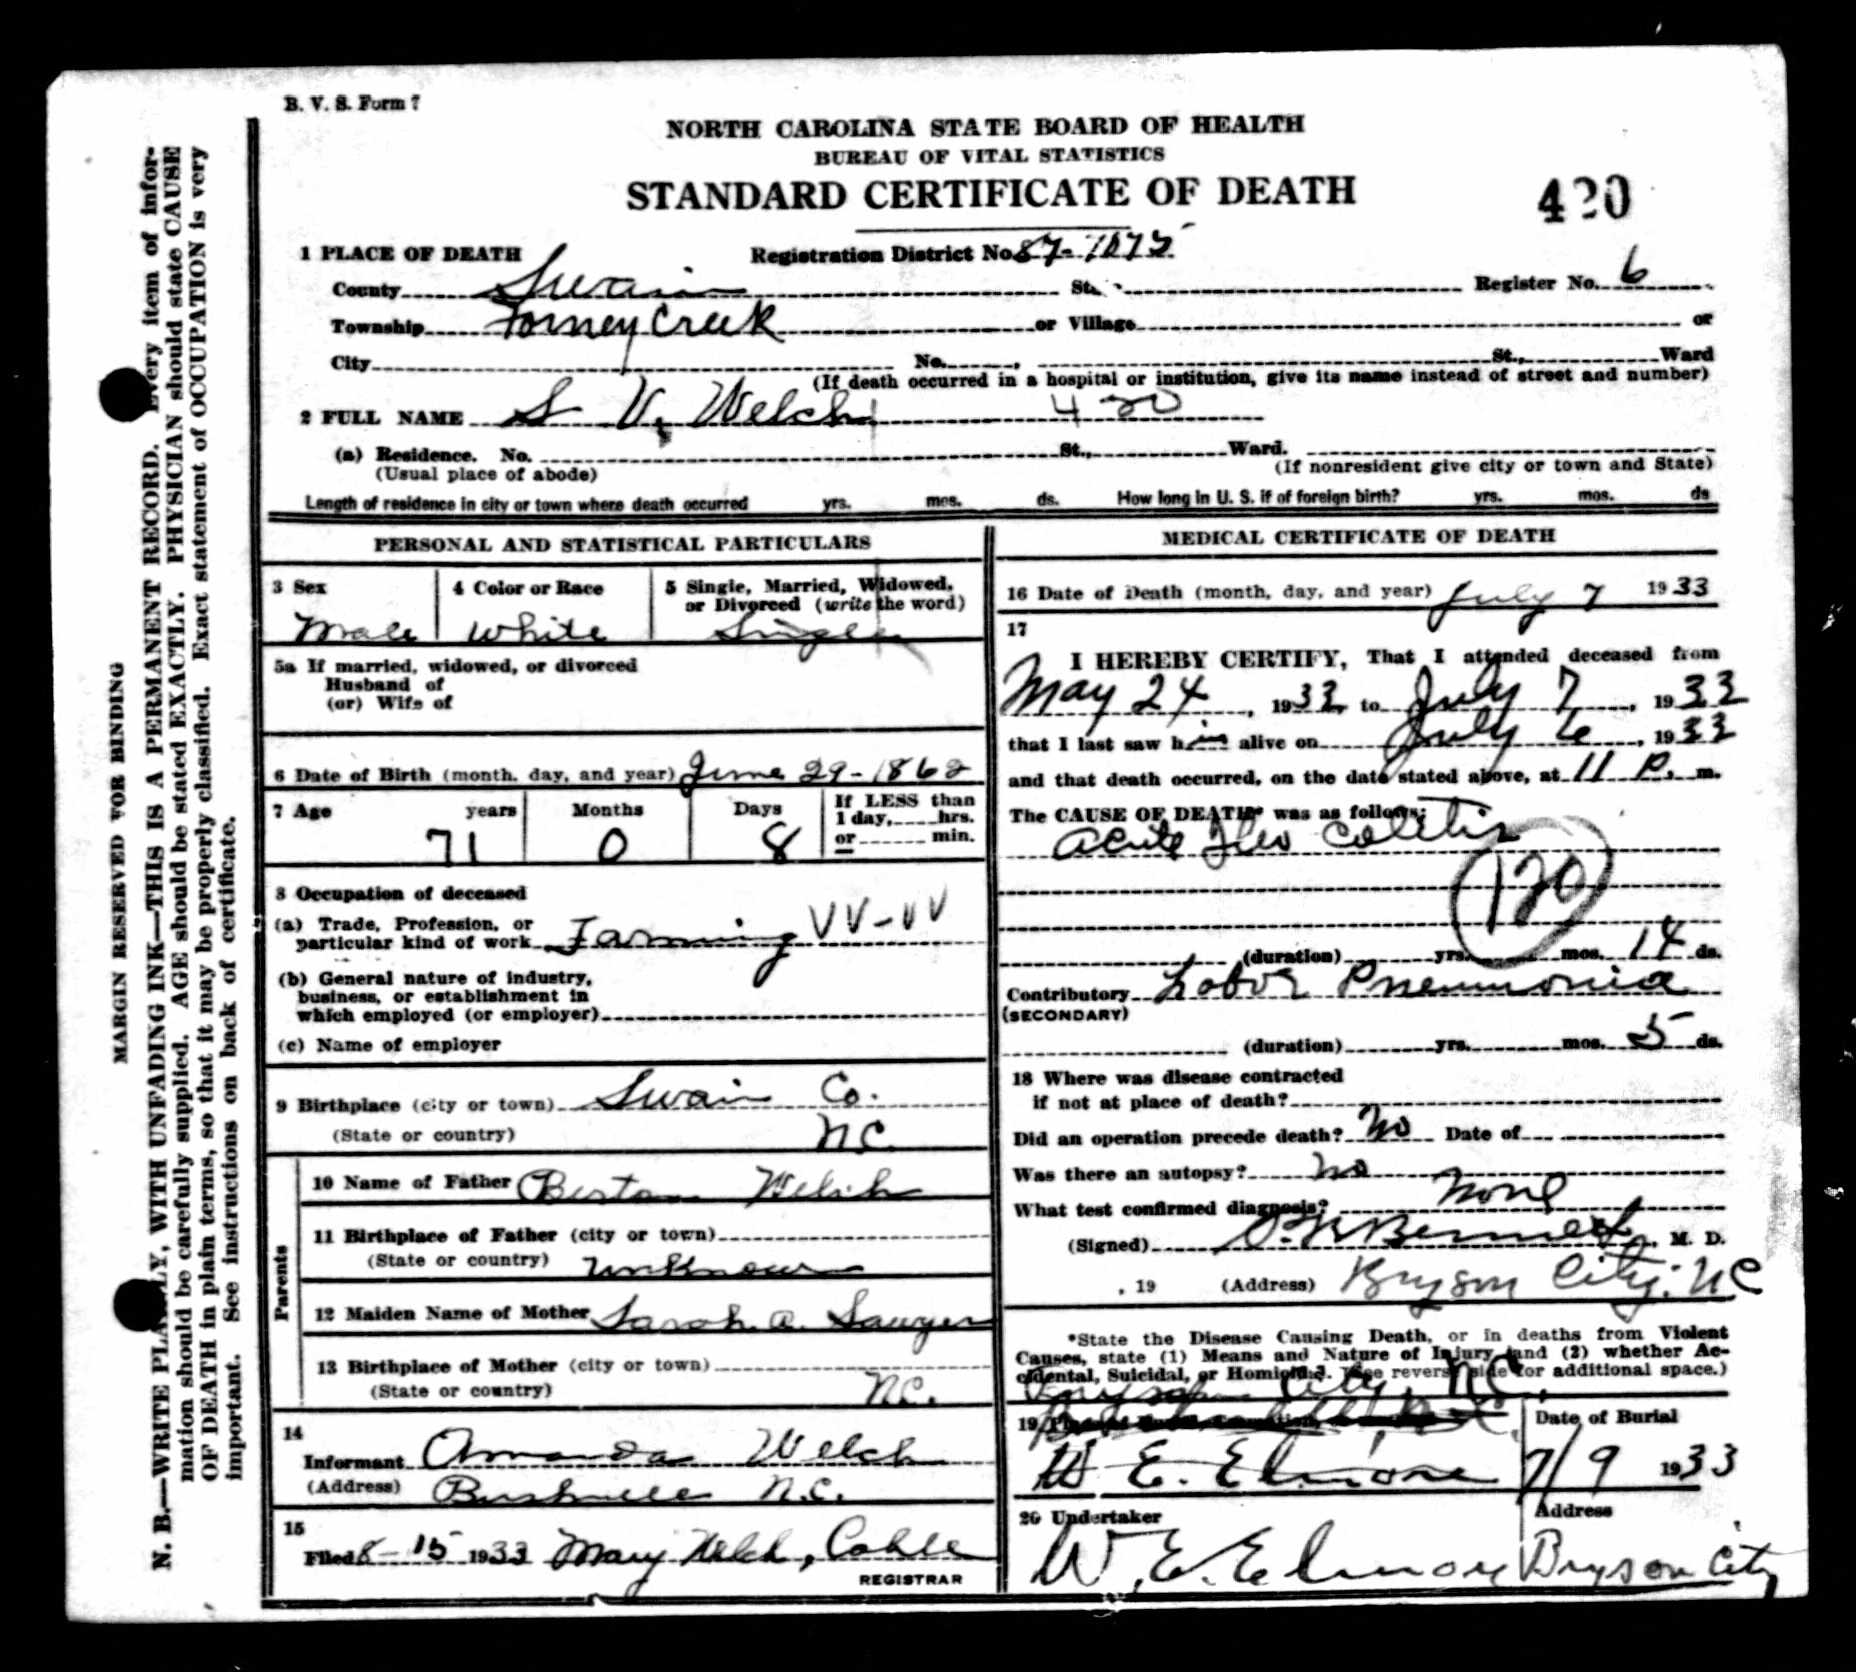 B. V. S. Form 7
NORTH CAROLINA STATE BOARD OF HEALTH
BUREAU OF VITAL STATISTICS
STANDARD CERTIFICATE OF DEATH
420
1 PLACE OF DEATH Registration District No. 87-1075
County Swain St. Register No. 6
Township Forney Creek or Village or
City No. , St., Ward
(If death occurred in a hospital or institution, give its name instead of street and number)
2 FULL NAME S V. Welch 420
(a) Residence. No. St., Ward.
(Usual place of abode) (If nonresident give city or town and State)
Length of residence in city or town where death occurred yrs. mos. ds. How long in U. S. if of foreign birth? yrs. mos. ds
PERSONAL AND STATISTICAL PARTICULARS
3 Sex 4 Color or Race 5 Single, Married, Widowed,
or Divorced (write the word)
Male White Single
5a If married, widowed, or divorced
Husband of
(or) Wife of
6 Date of Birth (month, day, and year) June 29-1862
7 Age years Months Days If LESS than
1 day, hrs.
or min.
71 0 8
8 Occupation of deceased
(a) Trade, Profession, or
particular kind of work Farming VV-VV
(b) General nature of industry,
business, or establishment in
which employed (or employer)
(c) Name of employer
9 Birthplace (city or town) Swain Co.
(State or country) N.C.
Parents
10 Name of Father Welch
11 Birthplace of Father (city or town)
(State or country) unknown
12 Maiden Name of Mother Sarah. A. Sawyer
13 Birthplace of Mother (city or town)
(State or country) N.C.
14
Informant Amanda Welch
(Address) Bushnell N.C.
15
Filed 8-15 1933 Mary Welch, Cable
REGISTRAR
MEDICAL CERTIFICATE OF DEATH
16 Date of Death (month, day, and year) July 7 1933
17
I HEREBY CERTIFY, That I attended deceased from
May 24, 1933, to July 7, 1933
that I last saw him alive on July 6, 1933
and that death occurred, on the date stated above, at 11 P. m.
The CAUSE OF DEATH* was as follows:
Acute Ileo Colitis
120
(duration) yrs. mos. 14 ds.
Contributory Lobor Pneumonia
(SECONDARY)
(duration) yrs. mos. 5 ds.
18 Where was disease contracted
if not at place of death?
Did an operation precede death? No Date of
Was there an autopsy? no
What test confirmed diagnosis? None
(Signed) Bennett, M. D.
, 19 (Address) Bryson City. N C
*State the Disease Causing Death, or in deaths from Violent
Causes, state (1) Means and Nature of Injury and (2) whether Ac-
cidental, Suicidal, or Homicidal. (See reverse side for additional space.)
Bryson City, N.C.
19 Date of Burial
W E. Elmore 7/9 1933
20 Undertaker Address
W. E. Elmore Bryson City
MARGIN RESERVED FOR BINDING
N. B.—WRITE PLAINLY, WITH UNFADING INK—THIS IS A PERMANENT RECORD. Every item of infor-
mation should be carefully supplied. AGE should be stated EXACTLY. PHYSICIAN should state CAUSE
OF DEATH in plain terms, so that it may be properly classified. Exact statement of OCCUPATION is very
important. See instructions on back of certificate.